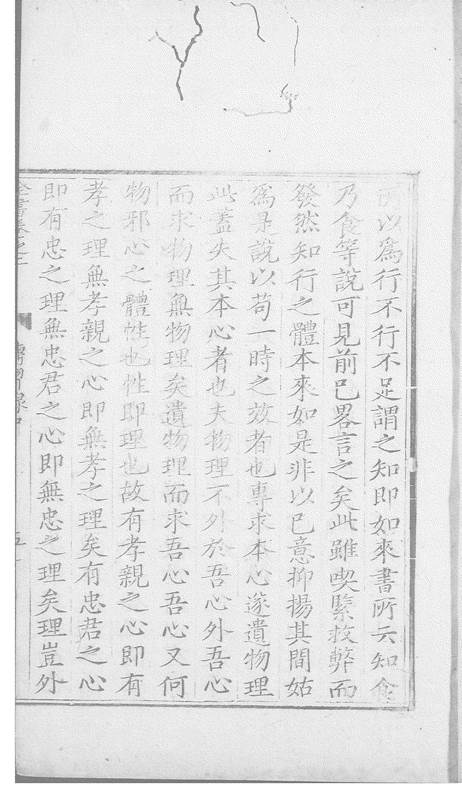 所以爲行不行不足謂之知即如來書所云知食
乃食等說可見前已畧言之矣此雖喫緊救弊而
發然知行之體本來如是非以已意抑揚其間姑
爲是說以苟一時之效者也專求本心遂遺物理
此蓋失其本心者也夫物理不外於吾心外吾心
而求物理無物理矣遺物理而求吾心吾心又何
物邪心之體性也性即理也故有孝親之心即有
孝之理無孝親之心即無孝之理矣有忠君之心
即有忠之理無忠君之心即無忠之理矣理豈外
全書卷之二 傳習錄中 五